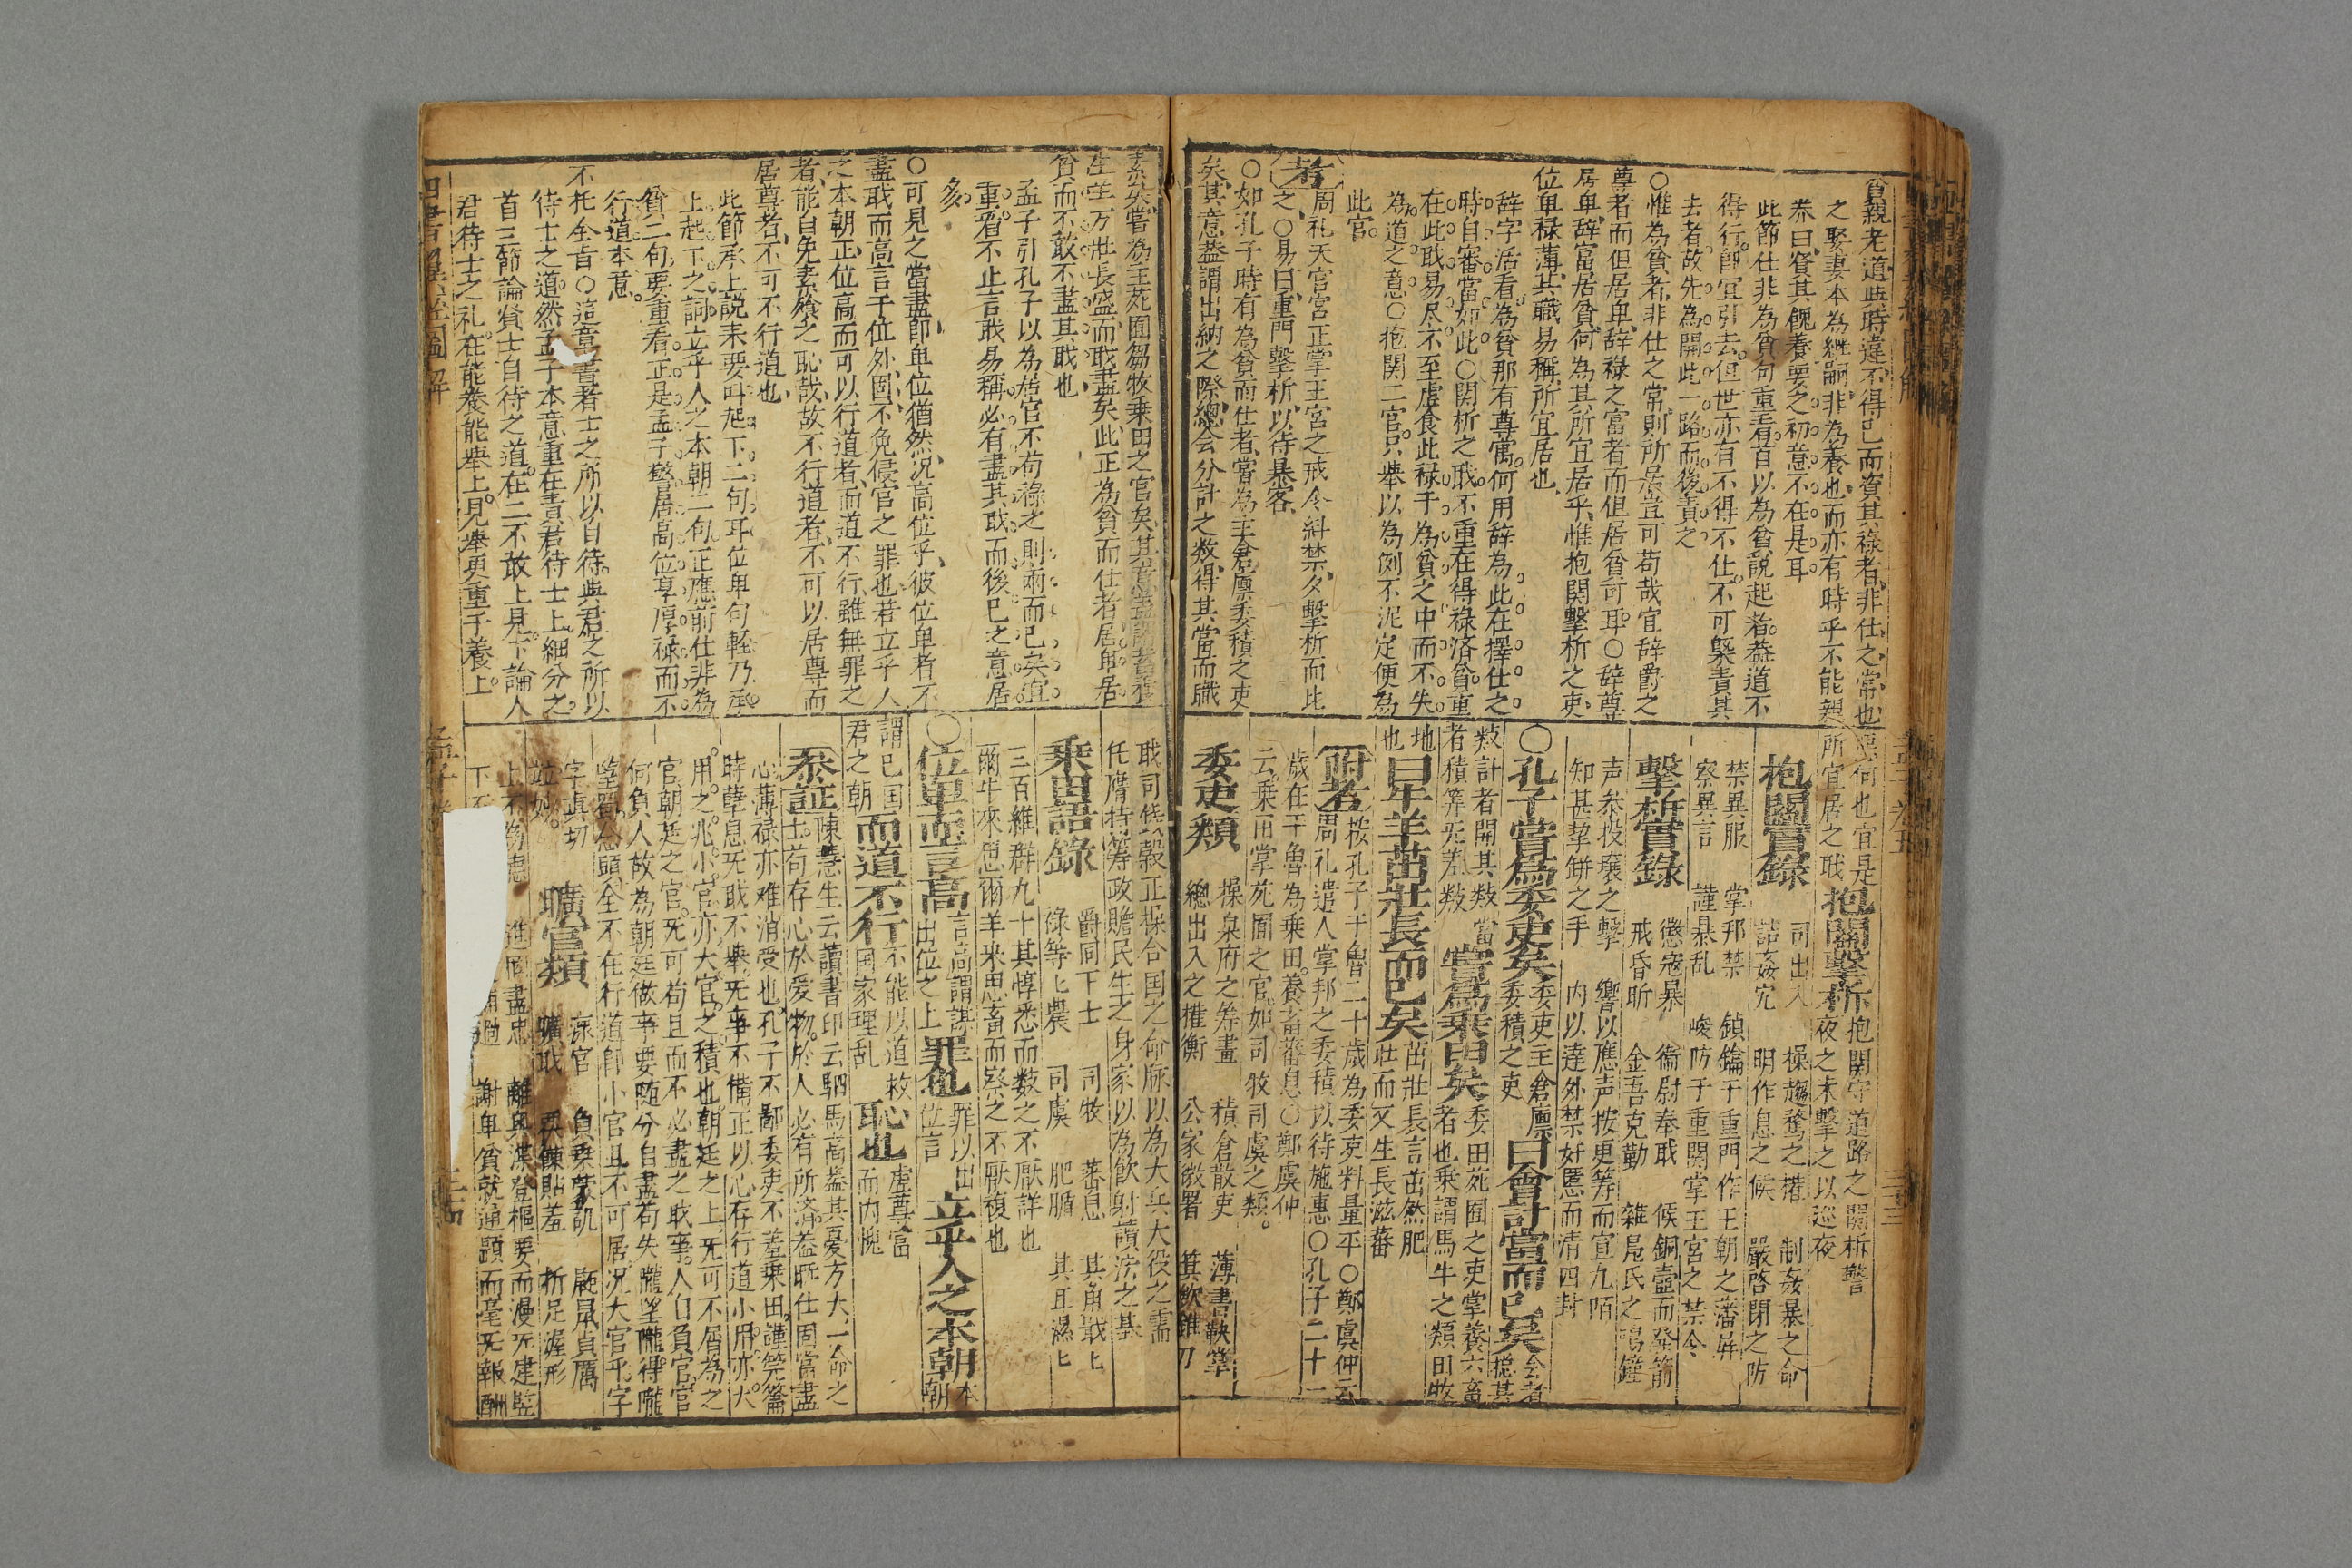 貧親老道與時違不得已而資其祿者非仕之常也
之娶妻本為継嗣非為養也而亦有時乎不能親
叅曰資其餽養要之初意不在是耳
此節仕非為貧句重看首以為貧說起者葢道不
得行卽宜引去但世亦有不得不仕不可槩責其
去者故先為開此一路而後責之
○惟為貧者非仕之常則所居豈可苟哉宜辞爵之
尊者而但居卑辞祿之富者而但居貧可耳○辞尊
居卑辞富居貧何為其所宜居乎惟抱関擊柝之吏
位卑禄薄其職易稱所宜居也
辞字活看為貧那有尊富何用辞為此在擇仕之
時自審當如此○関柝之職不重在得禄済貧重
在此職易尽不至虛食此禄于為貧之中而不失
為道之意○抱関二官只舉以為例不泥定便為
此官
考 周礼天官宮正掌王宮之戒令糾禁夕擊柝而比
之○易曰重門擊柝以待暴客
○如孔子時有為貧而仕者嘗為主倉廩委積之吏
矣其意葢謂出納之際總会分計之数得其當而職
所宜居之耺抱關擊柝抱関守道路之關柝警
夜之木擊之以巡夜
抱關實錄
司出入
詰姦宄
操趨騖之權
明作息之候
制姦暴之命
嚴啓閉之防
禁異服
察異言
掌邦禁
謹暴乱
鎮鑰于重門作王朝之藩屏
峻防于重関掌王宮之禁令
擊柝實錄
懲寇暴
戒昏昕
衞尉奉耺
金吾克勤
候銅壺而發箭
雜鳧氏之鳴鐘
声叅投壤之擊
知甚挈缾之手
響以應声按更筹而宣九陌
内以達外禁奸慝而清四封
○孔子嘗爲委吏矣委吏主倉廩委積之吏曰會計當而已矣会者総其
数計者開其数當者積筭无差数嘗爲乘田矣委田苑囿之吏掌養六畜者也乘謂馬牛之類田牧
地也曰牛羊茁壯長而已矣茁壯長言茁然肥壮而又生長滋蕃
附考 按孔子于魯二十歲為委吏料量平○鄭虞仲云
周礼遣人掌邦之委積以待施惠○孔子二十一
歲在于魯為乗田養畜蕃息○鄭虞仲
云乗田掌苑囿之官如司牧司虞之類
委吏類
操泉府之筹畫
總出入之權衡
積倉散吏
公家微署
薄書鞅掌
其飲錐刀
素矣嘗為主苑囿芻牧乗田之官矣其意葢謂畜養
牛羊万壮長盛而耺盡矣此正為貧而仕者居卑居
貧而不敢不盡其耺也
孟子引孔子以為居官不苟祿之則兩而已矣宜
重看不止言耺易稱必有盡其耺而後已之意居
多
○可見之當盡卽卑位猶然况高位乎彼位卑者不
盡耺而高言于位外固不免侵官之罪也若立乎人
之本朝正位高而可以行道者而道不行雖無罪之
者能自免素飱之恥哉故不行道者不可以居尊而
居尊者不可不行道也
此節承上説来要叫起下二句耳位卑句軽乃承
上起下之詞立乎人之本朝二句正應前仕非為
貧二句要重看正是孟子警居高位享厚禄而不
行道本意
不托全旨○這章責者士之所以自待與君之所以
待士之道然孟子本意重在責君待士上細分之
首三節論貧士自待之道在二不敢上見下論人
君待士之礼在能養能舉上見舉更重于養上
耺司錢穀正操合国之命脉以為大兵大役之需
任膺持筹政贍民生之身家以為飲射讀法之基
乗田語錄
爵同下士
祿等上農
司牧
司虞
蕃息
肥腯
其角戢匕
其耳濕匕
三百維群九十其犉悉而数之不厭詳也
爾牛來思爾羊来思畜而察之不厭複也
○位卑而言高言高謂謀出位之上罪也罪以出位言立乎人之本朝本朝
謂已国君之朝而道不行不能以道救国家理乱恥也虛尊富而内愧
叅証 陳慧生云讀書印云駟馬高葢其憂方大一命之
士苟存心於爱物於人必有所済葢既仕固當盡
心薄禄亦难消受也孔子不鄙委吏不羞乗田謹筦籥
時孽息旡耺不舉旡事不備正以心存行道小用亦大
用之兆小官亦大官之積也朝廷之上旡可不屑為之
官朝廷之官旡可苟且而不必盡之耺事人曰負官官
何負人故為朝廷做事要随分自盡苟失隴望隴得隴
望蜀念頭全不在行道卽小官且不可居况大官乎字
字眞切
並妙
曠官類
瘝官
曠耺
負乗致凱
覆餗貼羞
鼫鼠貞厲
折足渥形
上不為德
進思盡忠
離與渠登樞要而漫旡建竪
謝卑貧就通顕而毫旡報酬
四書翼註圖解